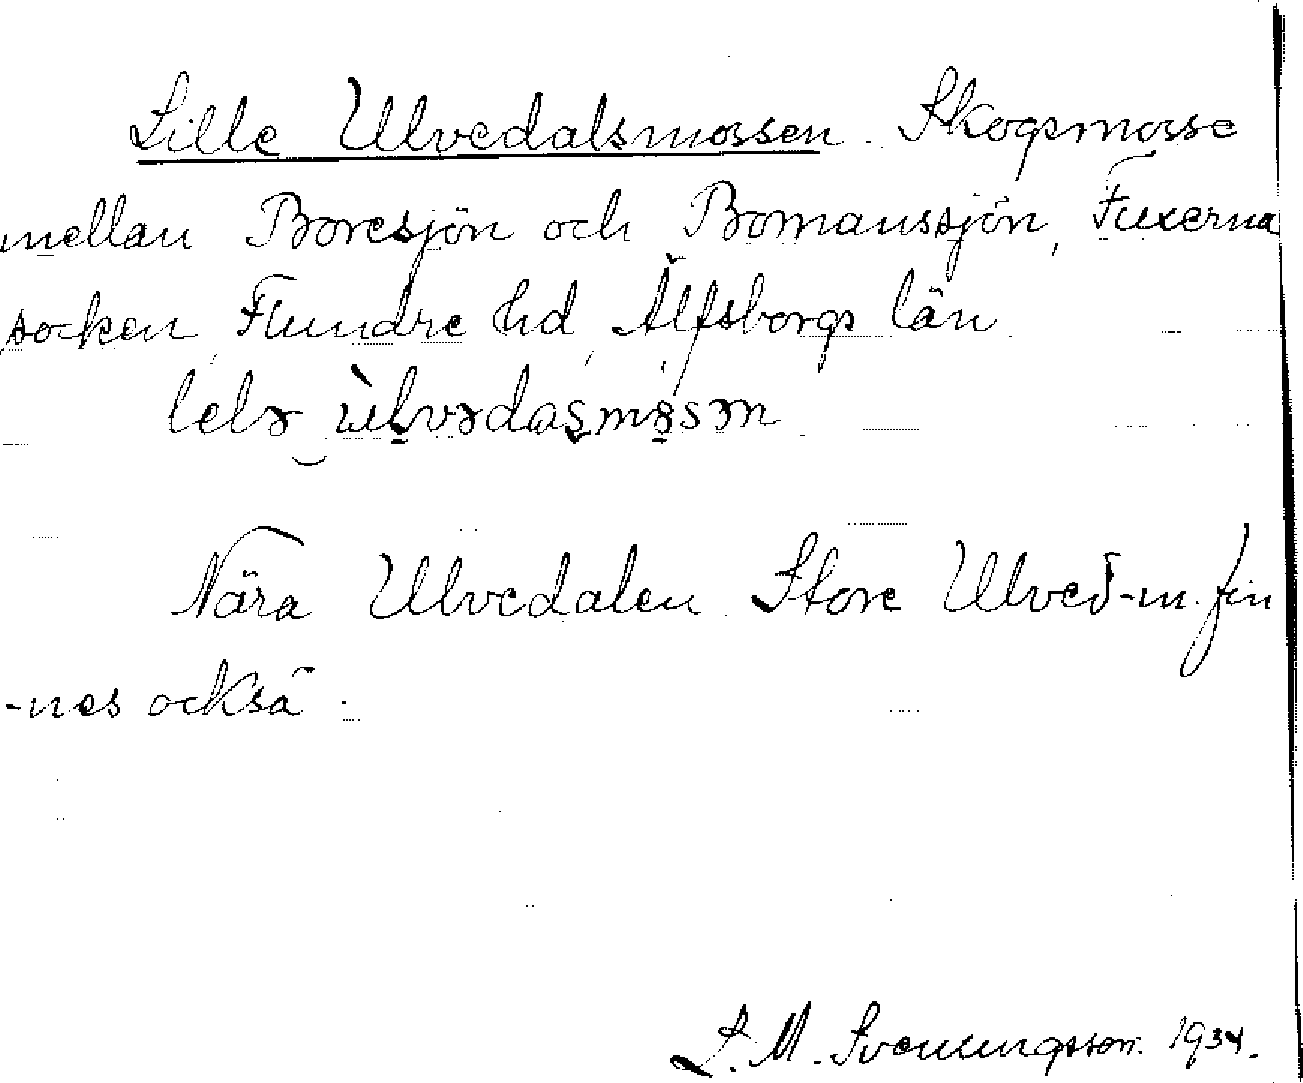 Lille Ulvedalsmossen. Skogsmosse
mellan Boresjön och Bomanssjön, Fuxerna
socken, Flundre hd, Älfsborgs län.
lelə ùlvədasmɵsən
Nära Ulvedalen. Store Ulved-m. fin
-nes också.
L. M. Svenungsson. 1934.